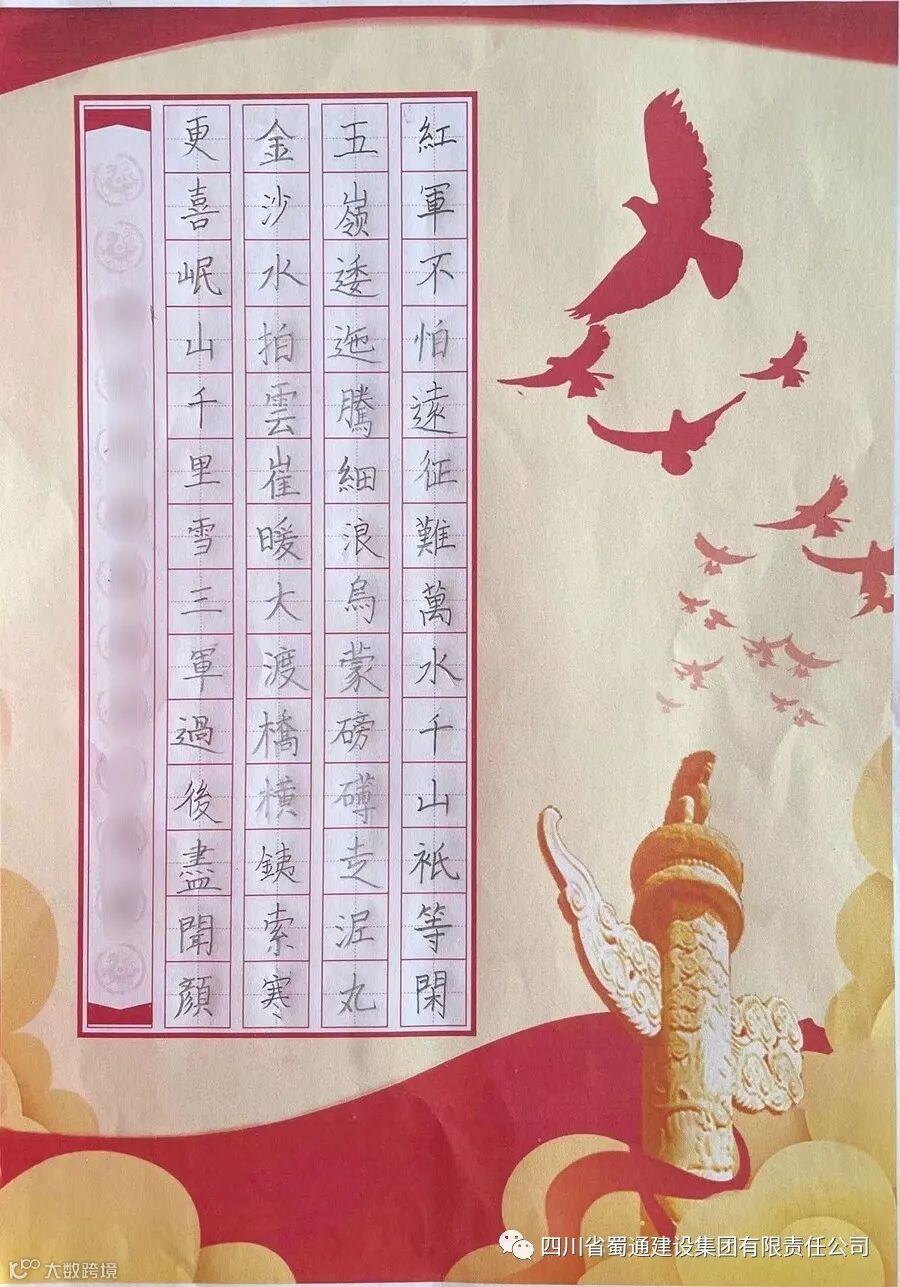 紅軍不怕遠征難萬水千山祇等閑
五嶺逶迤騰細浪烏蒙磅礴走泥丸
金沙水拍雲崔暖大渡橋横銕索寒
更喜岷山千里雪三軍過後盡聞顏
四川省蜀通建设集团有限责任公司
大数跨境